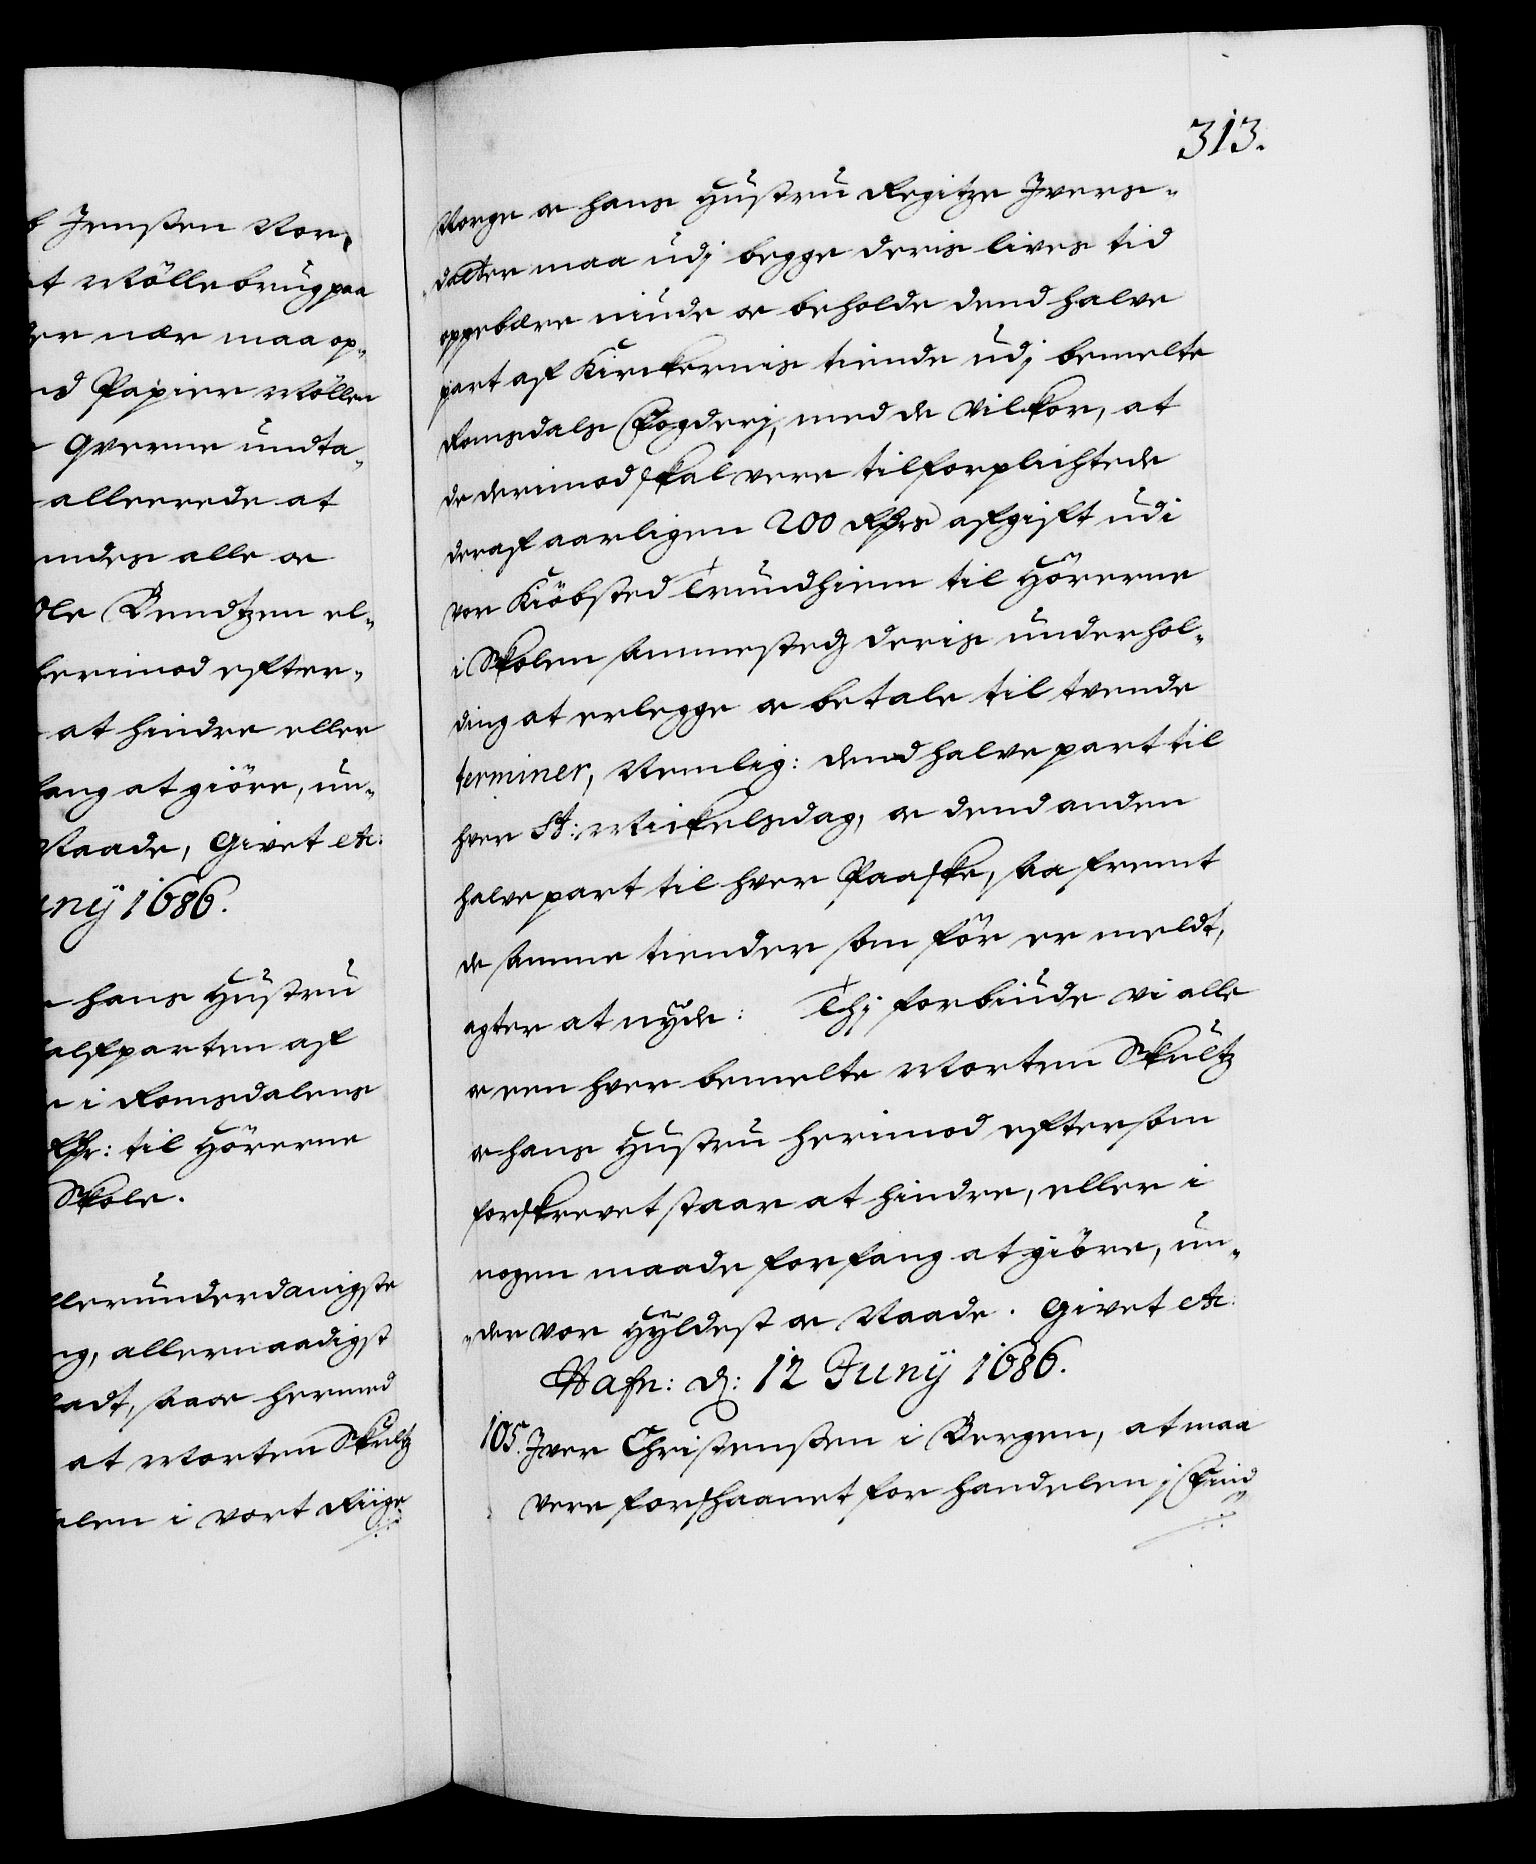 313.
Jenssen Nor,
Möllebrug paa
nær maa op¬
Papier Möllen
Qverne undta¬
allerede at
alle oc
Ole Bendtzen el¬
herimod efter¬
at hindre eller
at giöre, un¬
Naade, Givet etc:
1686.
hans Hustru
halfparten af
i Romsdalens
til Hörerne
Skole.
allerunderdanigste
allernaadigst
saa oc hermed
at Morten Skultz
i vort Riige
Norge oc hans Hustru Regitze Ivers¬
datter maa udj begge deris lives tid
oppebære niude oc beholde dend halve
part af Kirckernis tiende udj bemelte
Romsdals Fogderj, med de vilkor, at
de derimod skal vere tilforplichtede
deraf aarligen 200 Rdrs afgift udi
vor Kiöbsted Trundhiem til Hörerne
i Skolen sammestedz deris underhol¬
ding at erlegge oc betale til tvende
terminer, Nemlig: dend halve part til
hver St: Mickelsdag, oc dend anden
halve part til hver Paaske, saafremt
de samme tiender som för er meldt,
agter at nyde: Thj forbiude vi alle
oc een hver bemelte Morten Skultz
oc hans Hustru herimod eftersom
forskrevet staar at hindre, eller i
nogen maade forfang at giöre, un¬
der vor Hyldest oc Naade. Givet etc:
Hafn: d: 12 Junij 1686.
105. Iver Christenssen i Bergen, at maa
vere forskaanet for handelen j Find